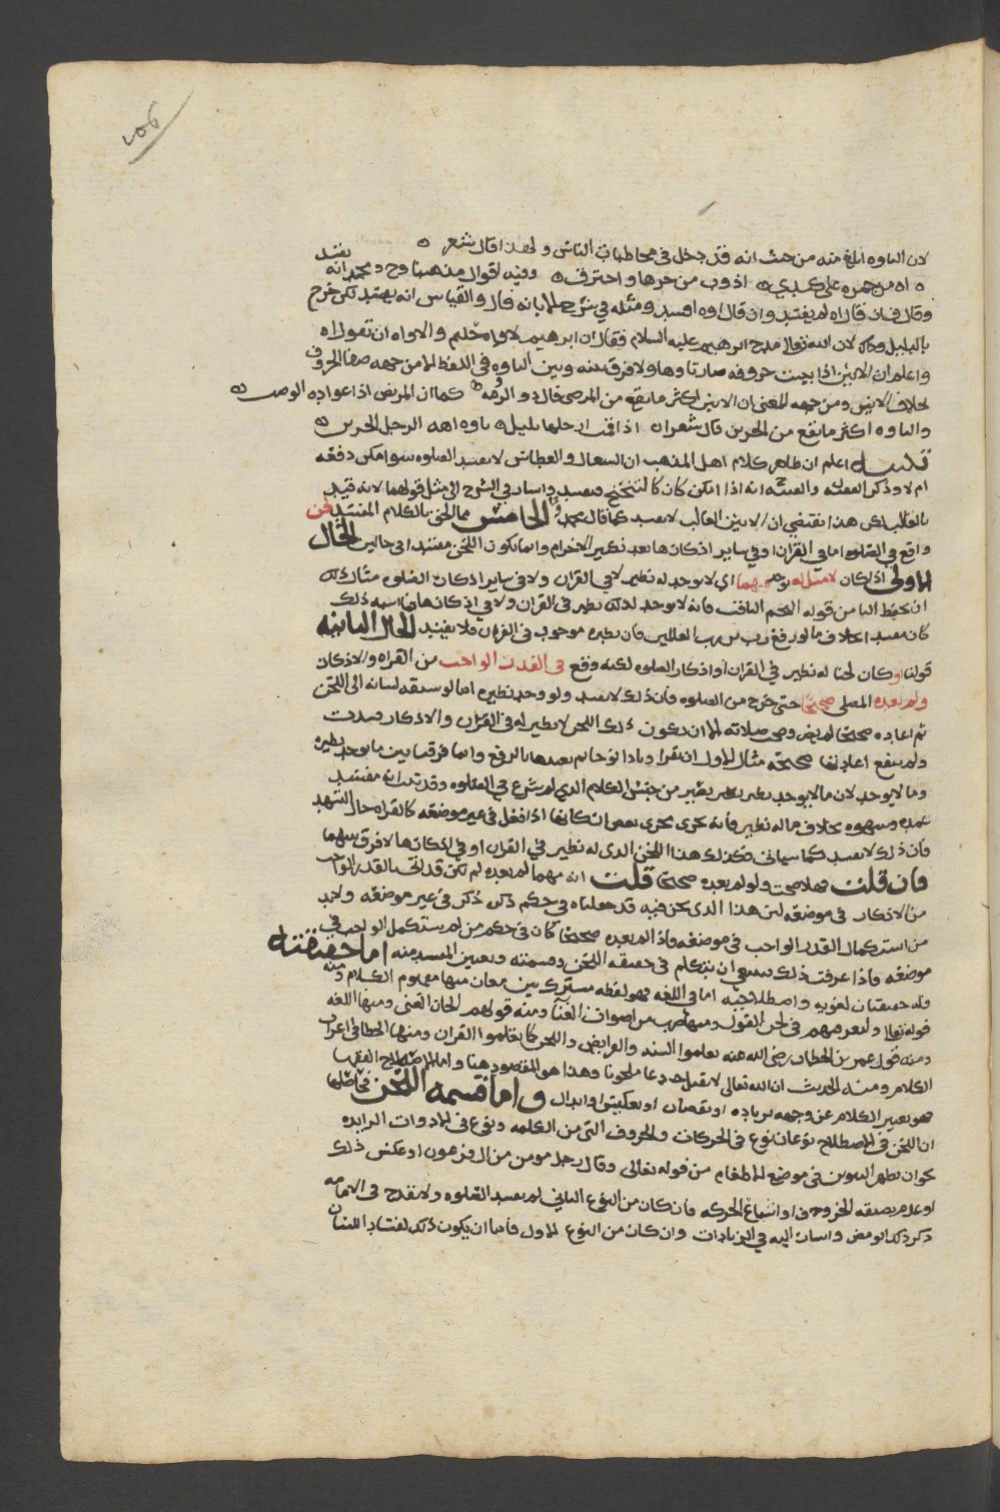 لان التاوه ابلغ منه من حيث انه قد دخل في مخاطبات الناس ولهذا قال شعر
اه من جمره على كبدي اذوب من حرها واحترف وفيه اقوال مذهبنا وح ومحمد انه يفسد
وقال ف ان قال اه لم يفسد وان قال اوه افسد ومثله في شرح الابانه قال والقياس انه يفسد لكن خرج
بالدليل وذلك لان الله تعالى مدح ابرهيم عليه السلام فقال ان ابرهيم لاواه حليم والاواه ان تقول اه
واعلم ان الانين اذا بينت حروفه صار تاوها ولا فرق بينه وبين التاوه في اللفظ الا من جهه صفا الحروف
بخلاف الانين ومن جهه المعنى ان الانين اكثر ما يقع من المرضى قال ذو الرمه كما ان المريض اذا عواده الوصب
والتاوه اكثر ما يقع من الحزين قال شعر ان اذا قمت ارحلها بليل تاوه اهه الرجل الحزين
تنبيه اعلم ان ظاهر كلام اهل المذهب ان السعال والعطاس لا يفسد الصلوه سوا امكن دفعه
ام لا وذكر الفقيه انه اذا امكن كان كالتنحنح فيفسد واشار في الشرح الى مثل قولهما لانه قيد
بالغالب لكن هذا يقتضي ان الانين الغالب لا يفسد كما قال محمد الخامس مما الحق بالكلام المفسد لحن
واقع في الصلوه اما في القران او في ساير اذكارها بعد تكبير الاحرام وانما يكون اللحن مفسدا في حالين الحال
الاولى اذا كان لا مثل له يوجد فيهما اي لا يوجد له نظير لا في القران ولا في ساير اذكار الصلوه مثال ذلك
ان يخفض البا من قوله النجم الثاقب فانه لا يوجد لذلك نظير في القران ولا في اذكارها فما اشبه ذلك
كان مفسدا بخلاف ما لو رفع رب من رب العالمين فان نظيره موجود في القران فلا يفسد الحال الثانيه
قولنا او كان لحنا له نظير في القران او اذكار الصلوه لكنه وقع في القدر الواجب من القراه والاذكار
ولم يعده المصلي صحيحا حتى خرج من الصلوه فان ذلك لا يفسد ولو وجد نظيره اما لو سبقه لسانه الى اللحن
ثم اعاده صحيحا لم يضر وصحت صلاته الا ان يكون ذلك اللحن لا نظير له في القران والاذكار فسدت
ولم ينفع اعادتها صحيحه مثال الاول ان يقرا ونادا نوحا ثم يعيدها بالرفع وانما فرقنا بين ما يوجد نظيره
وما لا يوجد لان ما لا يوجد نظيره يصير من جنس الكلام الذي لم يشرع في الصلوه وقد ثبت انه مفسد
عمده وسهوه بخلاف ما له نظير فانه يجري مجرى بعض اركانها اذا فعل في غير موضعه كالقراه حال التشهد
فان ذلك لا يفسد كما سياتي فكذلك هذا اللحن الذي له نظير في القران او في اذكارها لا فرق بينهما
فان قلت فهلا صحت ولو لم يعده صحيحا قلت انه مهما لم يعده لم يكن قد اتى بالقدر الواجب
من الاذكار في موضعه لان هذا الذي لحن فيه قد جعلناه في حكم ذكر ذكر في غير موضعه ولابد
من استكمال القدر الواجب في موضعه فاذا لم يعده صحيحا كان في حكم من لم يستكمل الواجب في
موضعه واذا عرفت ذلك فينبغي ان نتكلم في حقيقه اللحن وقسمته وتعيين المفسد منه اما حقيقته
وله حقيقتان لغويه واصطلاحيه اما في اللغه فهو لفظه مشترك بين معان منها مفهوم الكلام ومنه
قوله تعالى ولتعرفنهم في لحن القول ومنها ضرب من اصوات الغنا ومنه قولهم الحان الغنى ومنها اللغه
ومنه قول عمر بن الخطاب رضي الله عنه تعلموا السنه والفرايض واللحن كما تعلموا القران ومنها الخطا في اعراب
الكلام ومنه الحديث ان الله تعالى لا يقبل دعا ملحونا وهذا هو المقصود هنا واما في اصطلاح الفقها
فهو تغيير الكلام عن وجهه بزياده او نقصان او تعكيس او ابدال واما قسمه اللحن فحاصلها
ان اللحن في الاصطلاح نوعان نوع في الحركات والحروف التي من الكلمه ونوع في الادوات الزايده
نحو ان يظهر التنوين في موضع الادغام من قوله تعالى وقال رجل مومن من ال فرعون او عكس ذلك
او عدم تصفيه الحروف او اشباع الحركه فان كان من النوع الثاني لم يفسد الصلوه ولا يقدح في الامامه
ذكر ذلك ابو مضر واشار اليه في الزيادات وان كان من النوع الاول فاما ان يكون ذلك لفساد اللسان